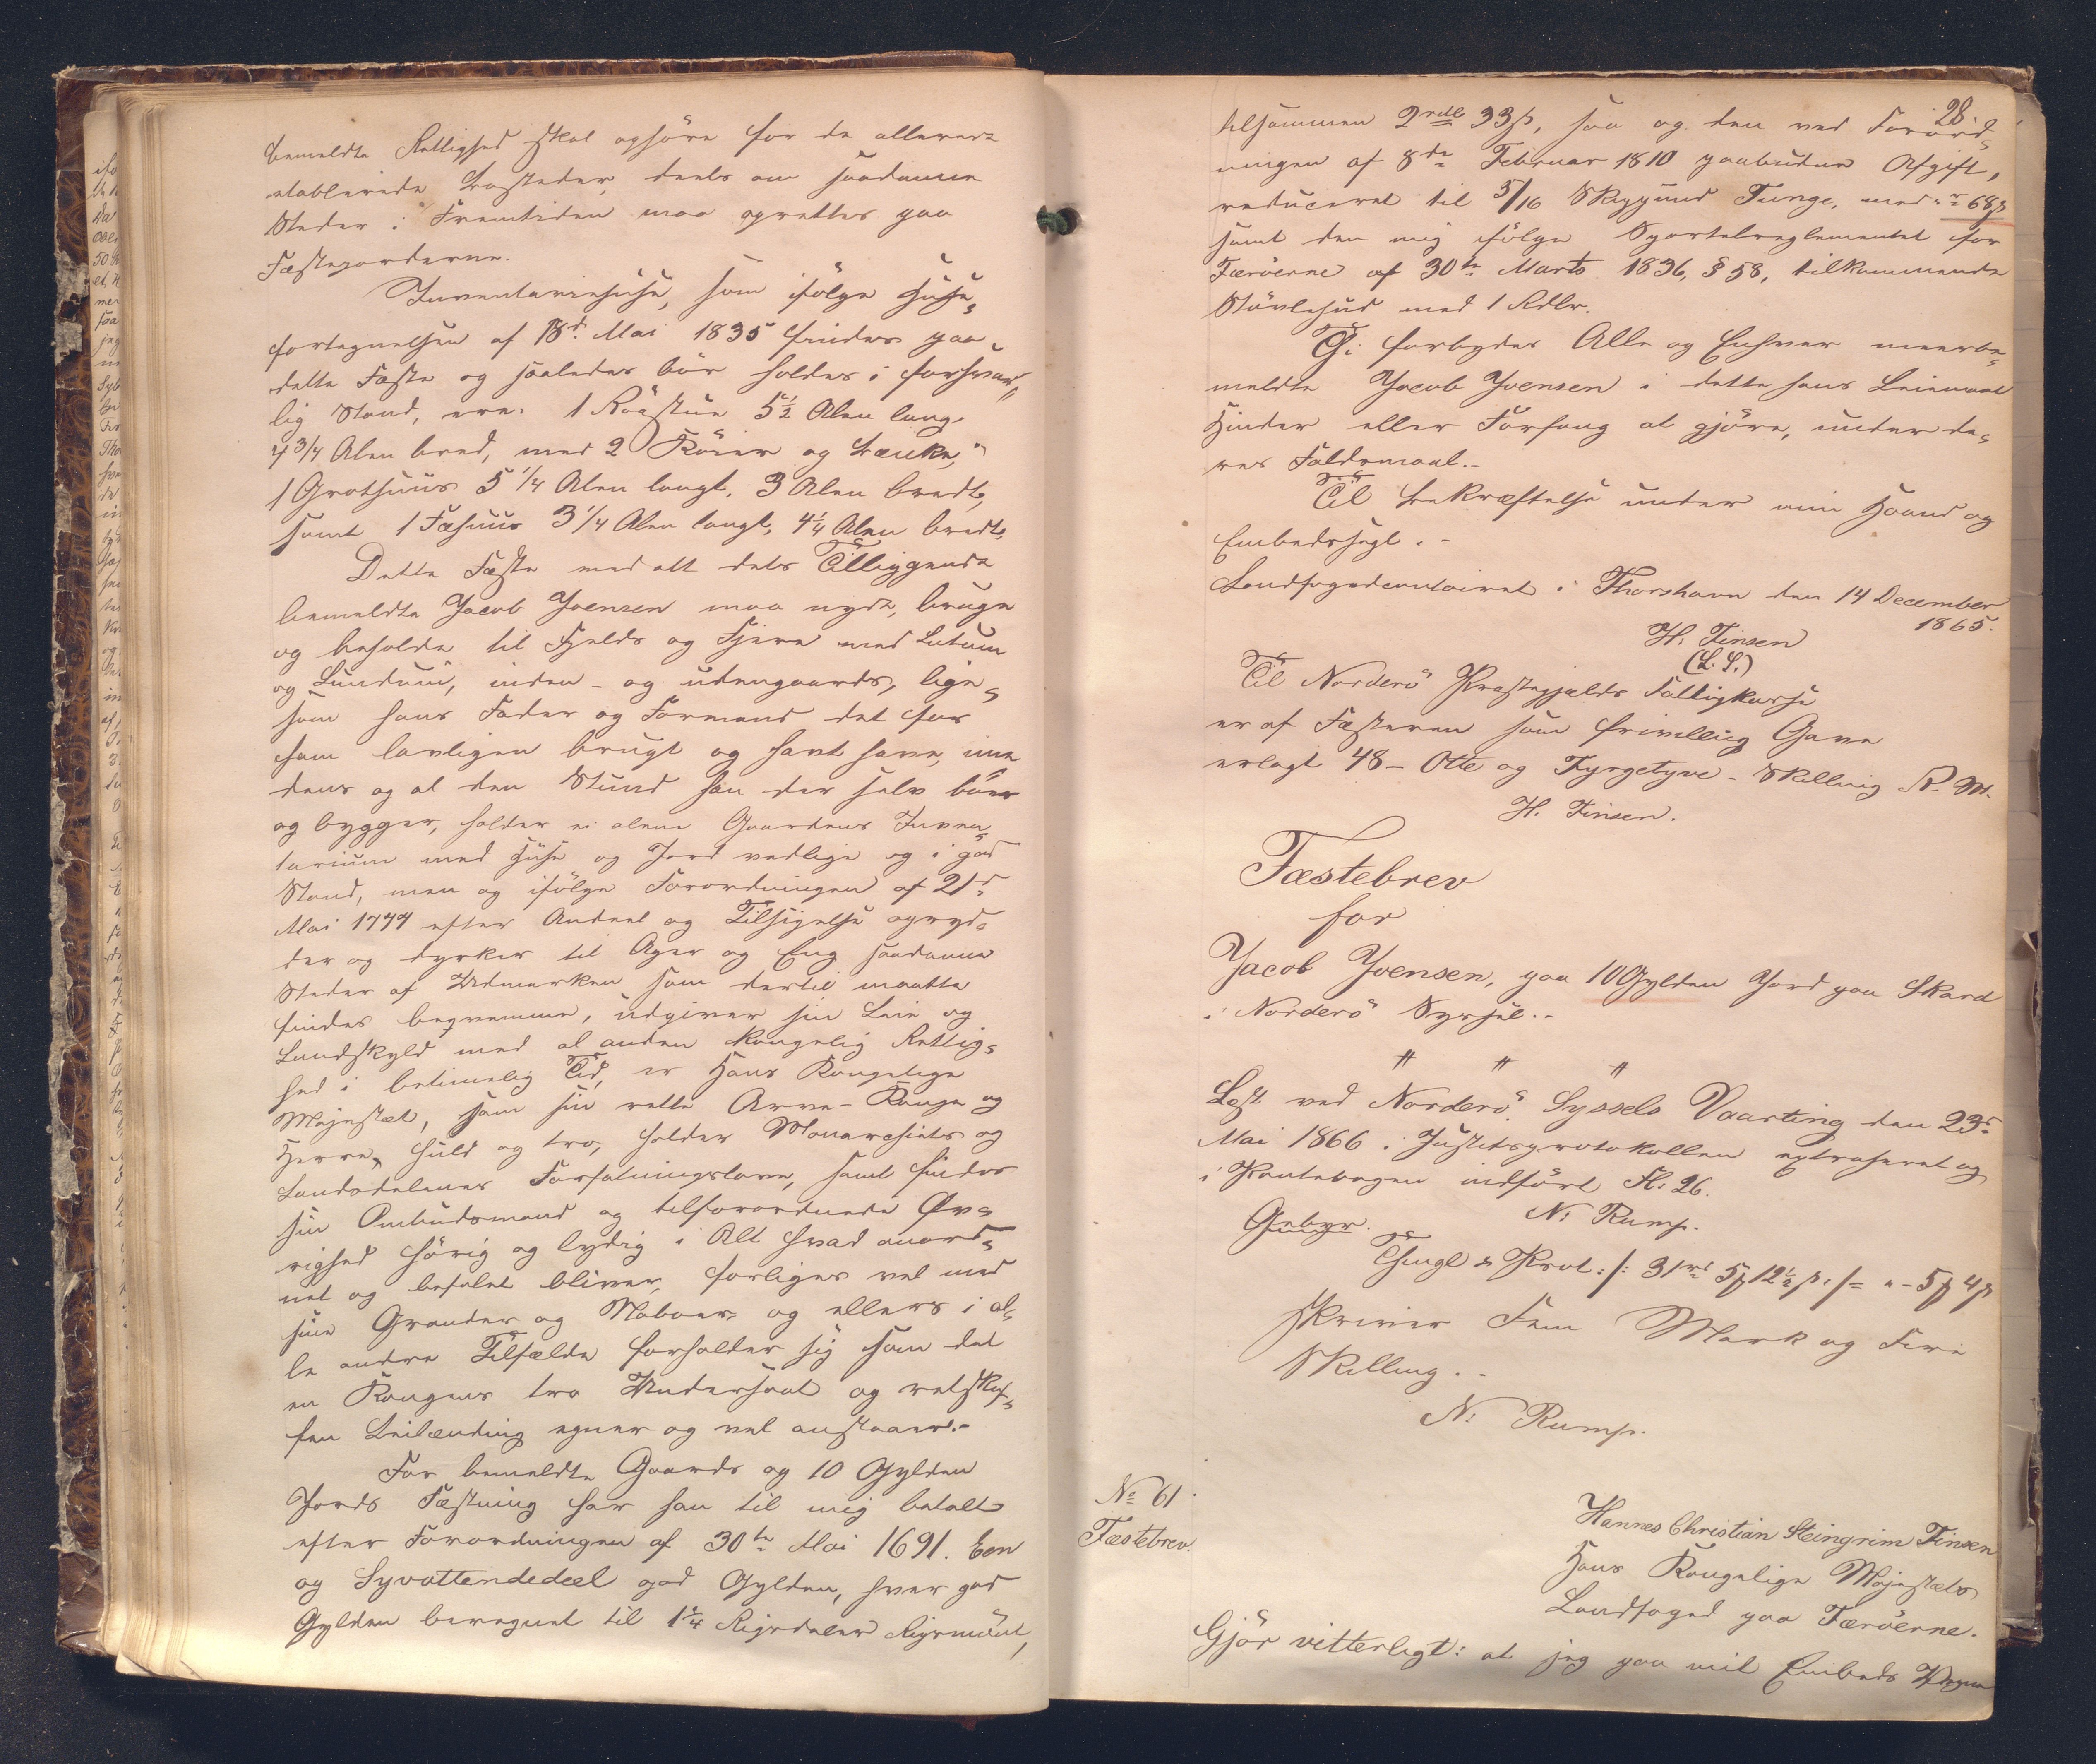 bemeldte Rettighed skal ophöre for de allerede
etablerede Trosteder, deels om saadanne
Steder i Fremtiden maa oprettes paa
Fæstejorderne.
Inventariehuse, som ifölge Huse-
fortegnelsen af 18d. Mai 1835 findes paa
dette Fæste og saaledes bör holdes i forsvar-
lig Stand, ere: 1 Rögstue 5½ Alen lang,
4¾ Alen bred, med 2 Röier og Bænke,
1 Grothuus 5¼ Alen langt, 3 Alen bredt,
samt 1 Fæhuus 3¼ Alen langt, 4¼ Alen bredt.
Dette Fæste med alt dets Tilliggende
bemeldte Jacob Joensen maa nyde, bruge
og beholde til Fjelds og Fjære med Lutum
og Lundum, inden- og udengaards, lige-
som hans Fader og Formand det for
ham lovligen brugt og havt have, ime-
dens og al den Stund han der selv böer
og bygger, holder ei alene Gaardens Inven-
tarium med Huse og Jord vedlige og i god
Stand, men og ifölge Forordningen af 21d.
Mai 1777 efter Andeel og Tilsigelse opryd-
der og dyrker til Ager og Eng saadanne
Steder af Udmarken som dertil maatte
findes beqvemme, udgiver sin Leie og
Landskyld med al anden Kongelig Rettig-
hed i betimelig Tid, er Hans Kongelige
Majestæt, som sin rette Arve-Konge og
Herre, huld og tro, holder Monarchiets og
Landsdelenes Forfatningslove, samt findes
sin Ombudsmand og tilforordnede Öv-
righed hörig og lydig i Alt hvad anord-
net og befalet bliver, forliges vel med
sine Grander og Naboer, og ellers i al-
le andre Tilfælde forholder sig som det
en Kongens tro Undersaat og retskaf-
fen Leilænding egner og vel anstaaer.-
For bemeldte Gaards og 10 Gylden
Jords Fæstning har han til mig betalt
efter Forordningen af 30te Mai 1691. Een
og Syvottendedeel god Gylden, hver god
Gylden beregnet til 1¼ Rigsdaler Rigsmönt,
28.
tilsammen 2 rdl 33 s, saa og den ved Forord-
ningen af 8de Februar 1810 paabudne Afgift,
reduceret til 5/16 Skippund Tunge, med " " 68 s
samt den mig ifölge Sportelreglementet for
Færöerne af 30te Marts 1836, § 58, tilkommende
Stövlehud med 1 Rdlr.
Thi forbydes Alle og Enhver meerbe-
meldte Jacob Joensen i dette hans Leiemaal
Hinder eller Forfang at gjöre, under de-
res Faldsmaal.-
Til Bekræftelse under min Haand og
Embedssegl.-
Landfogedcontoiret i Thorshavn den 14 December
1865.
H: Finsen
(L. S.)
Til Norderö Præstegjælds Fattigkasse
er af Fæsteren som frivillig Gave
erlagt 48 - Otte og Fyrgetyve - Skilling R. M.
H. Finsen.
Fæstebrev
for
Jacob Joensen, paa 10 Gylden Jord paa Skard
i Norderö Syssel.-
" " "
Læst ved Norderö Syssels Vaarting den 23d.
Mai 1866 i Justitsprotokollen extraheret og
i Pantebogen indfört Fl: 26.
N: Rump.
Gebyr.
Thingl & Prot: /: 31 rd 5 # 12½ s :/ = " - 5 # 4 s
skriver Fem Mark og Fire
Skilling.-
N: Rump.
No 61.
Fæstebrev.
Hannes Christian Steingrim Finsen
Hans Kongelige Majestæts
Landfoged paa Færöerne.
Gjör vitterligt: at jeg paa mit Embeds Vegne